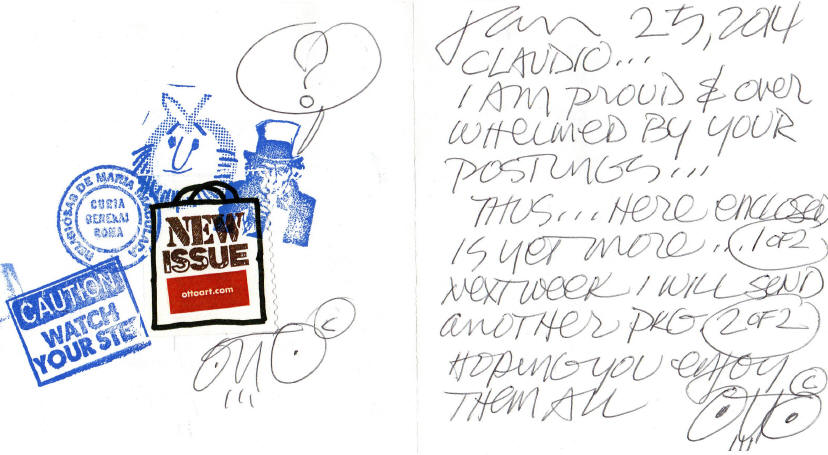 ?
RELIGIOSAS DE MARIA
CURIA
GENERAL
ROMA
NEW
ISSUE
ottoart.com
CAUTION
WATCH
YOUR STE
OTTO ©
Jan 25, 2014
CLAUDIO...
I AM PROUD & OVER
WHELMED BY YOUR
POSTINGS...
THUS... HERE ENCLOSED
IS YET MORE... 1 OF 2
NEXT WEEK I WILL SEND
ANOTHER PKG 2 OF 2
HOPING YOU ENJOY
THEM ALL
OTTO ©